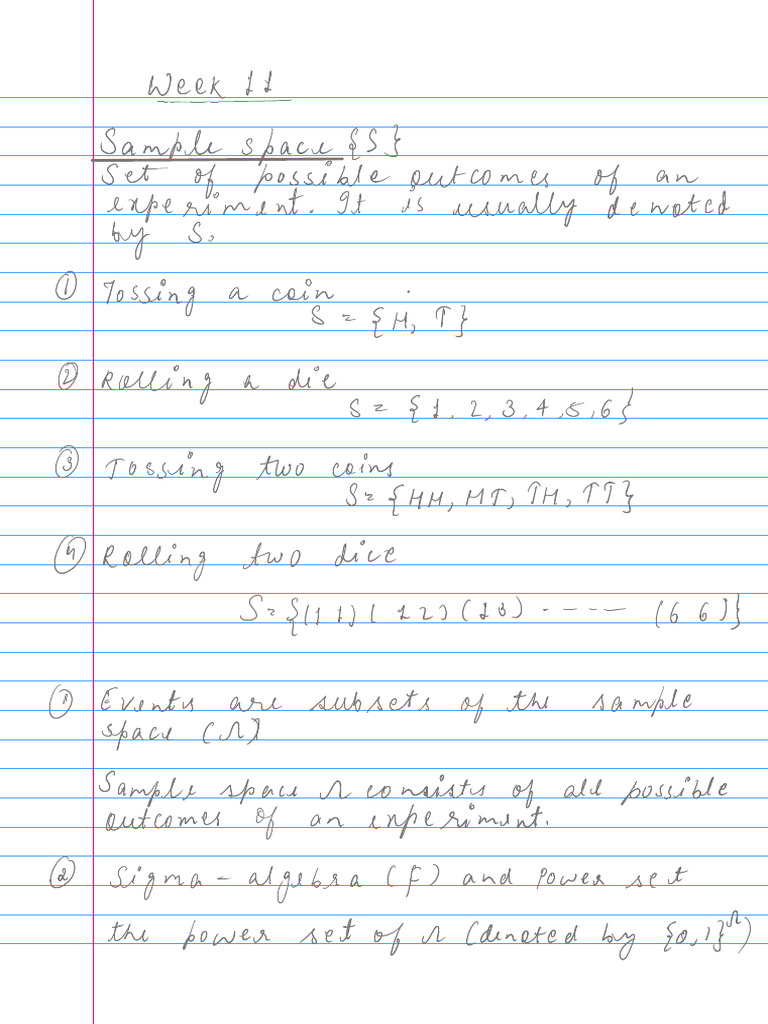 Week 11
Sample space {S}
Set of possible outcomes of an
experiment. It is usually denoted
by S.
① Tossing a coin
S = {H, T}
② Rolling a die
S = {1, 2, 3, 4, 5, 6}
③ Tossing two coins
S = {HH, HT, TH, TT}
④ Rolling two dice
S = {(1 1) (1 2) (1 3) ----- (6 6)}
① Events are subsets of the sample
space (Ω)
Sample space Ω consists of all possible
outcomes of an experiment.
② Sigma - algebra (F) and Power set
the power set of Ω (denoted by {0,1}^Ω)